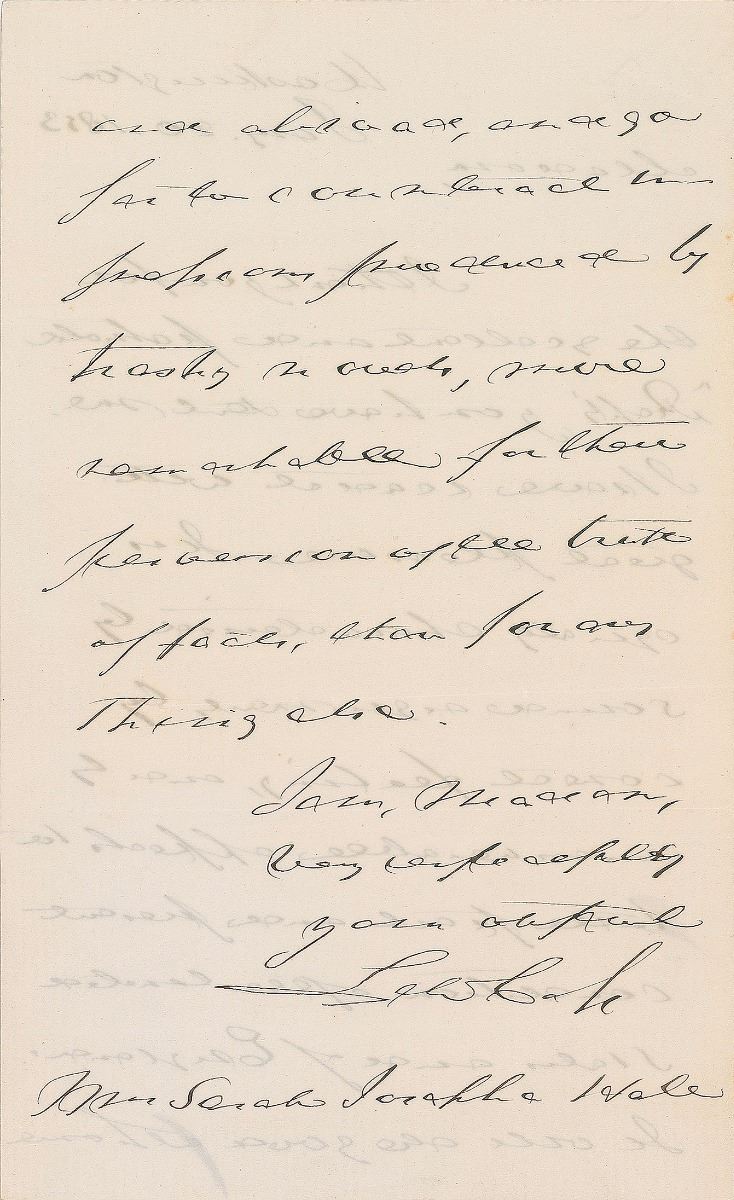 and abroad, and go
far to counteract im
pressions produced by
trashy novels, more
remarkable for their
perversion of the truth
of facts, than for any
thing else.
I am, Madam,
Very respectfully
your obt
Lew Cass
Mrs Sarah Josepha Hale